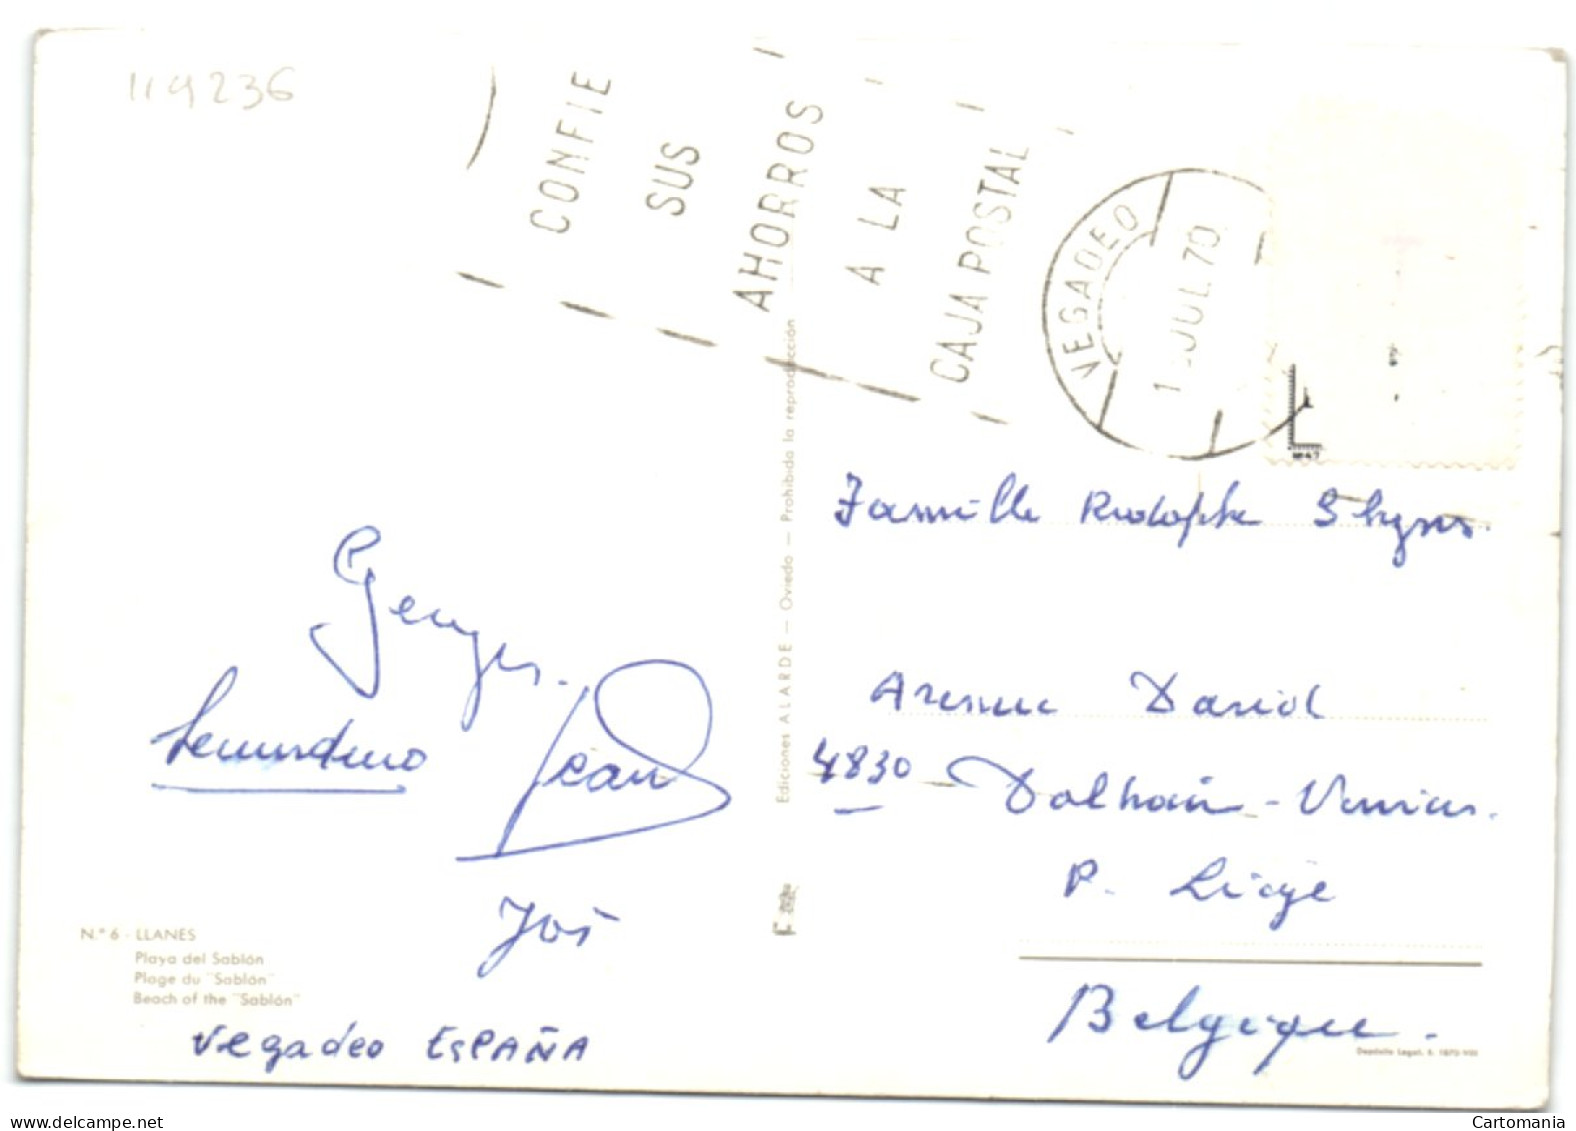 119236
CONFIE
SUS
AHORROS
A LA
CAJA POSTAL
VEGADEO
1 JUL.70
Famille Rodolphe
Avenue David
4830 Dolhain-
P. Liège
Belgique.
Georges.
Secundino
Jean
José
Vegadeo ESPAÑA
Ediciones ALARDE — Oviedo — Prohibida la reproducción
N.º 6 - LLANES
Playa del Sablón
Plage du "Sablón"
Beach of the "Sablón"
delcampe.net
Cartomania